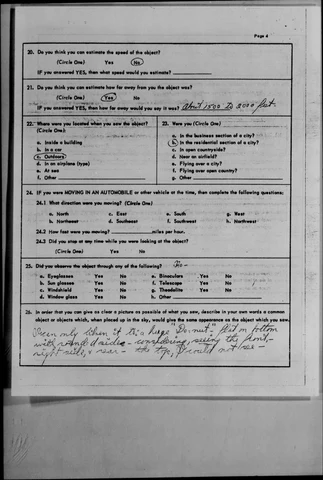 Page 4
20. Do you think you can estimate the speed of the object?
(Circle One) Yes No
IF you answered YES, then what speed would you estimate?
21. Do you think you can estimate how far away from you the object was?
(Circle One) Yes No
IF you answered YES, then how far away would you say it was? About 1500 to 2000 feet
22. Where were you located when you saw the object? 23. Were you (Circle One)
(Circle One) a. In the business section of a city?
a. Inside a building b. In the residential section of a city?
b. In a car c. In open countryside?
c. Outdoors d. Near an airfield?
d. In an airplane (type) e. Flying over a city?
e. At sea f. Flying over open country?
f. Other g. Other
24. IF you were MOVING IN AN AUTOMOBILE or other vehicle at the time, then complete the following questions:
24.1 What direction were you moving? (Circle One)
a. North c. East e. South g. West
b. Northeast d. Southeast f. Southwest h. Northwest
24.2 How fast were you moving? miles per hour.
24.3 Did you stop at any time while you were looking at the object?
(Circle One) Yes No
25. Did you observe the object through any of the following? No-
a. Eyeglasses Yes No e. Binoculars Yes No
b. Sun glasses Yes No f. Telescope Yes No
c. Windshield Yes No g. Theodolite Yes No
d. Window glass Yes No h. Other
26. In order that you can give as clear a picture as possible of what you saw, describe in your own words a common
object or objects which, when placed up in the sky, would give the same appearance as the object which you saw.
I can only liken it to a huge "Do-nut" flat on bottom
with rounded sides - considering, seeing the front,
right side, & rear - the top, I could not see -